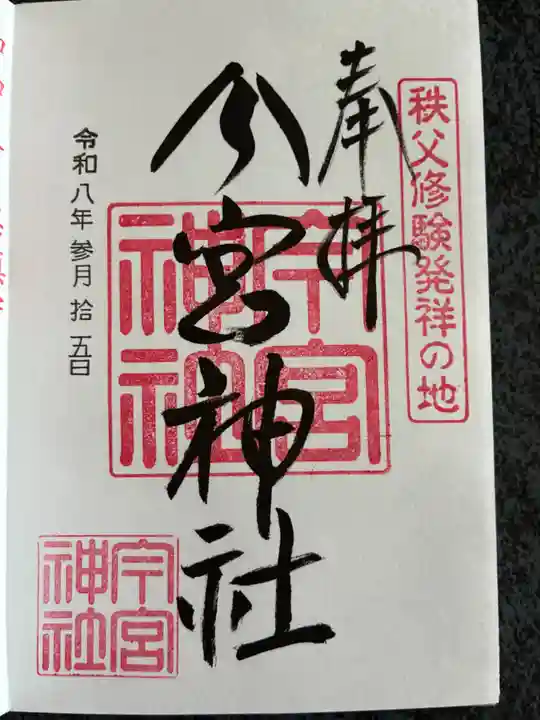 秩父修験発祥の地
奉拝
今宮神社
今宮
神社
今宮
神社
令和八年参月拾五日